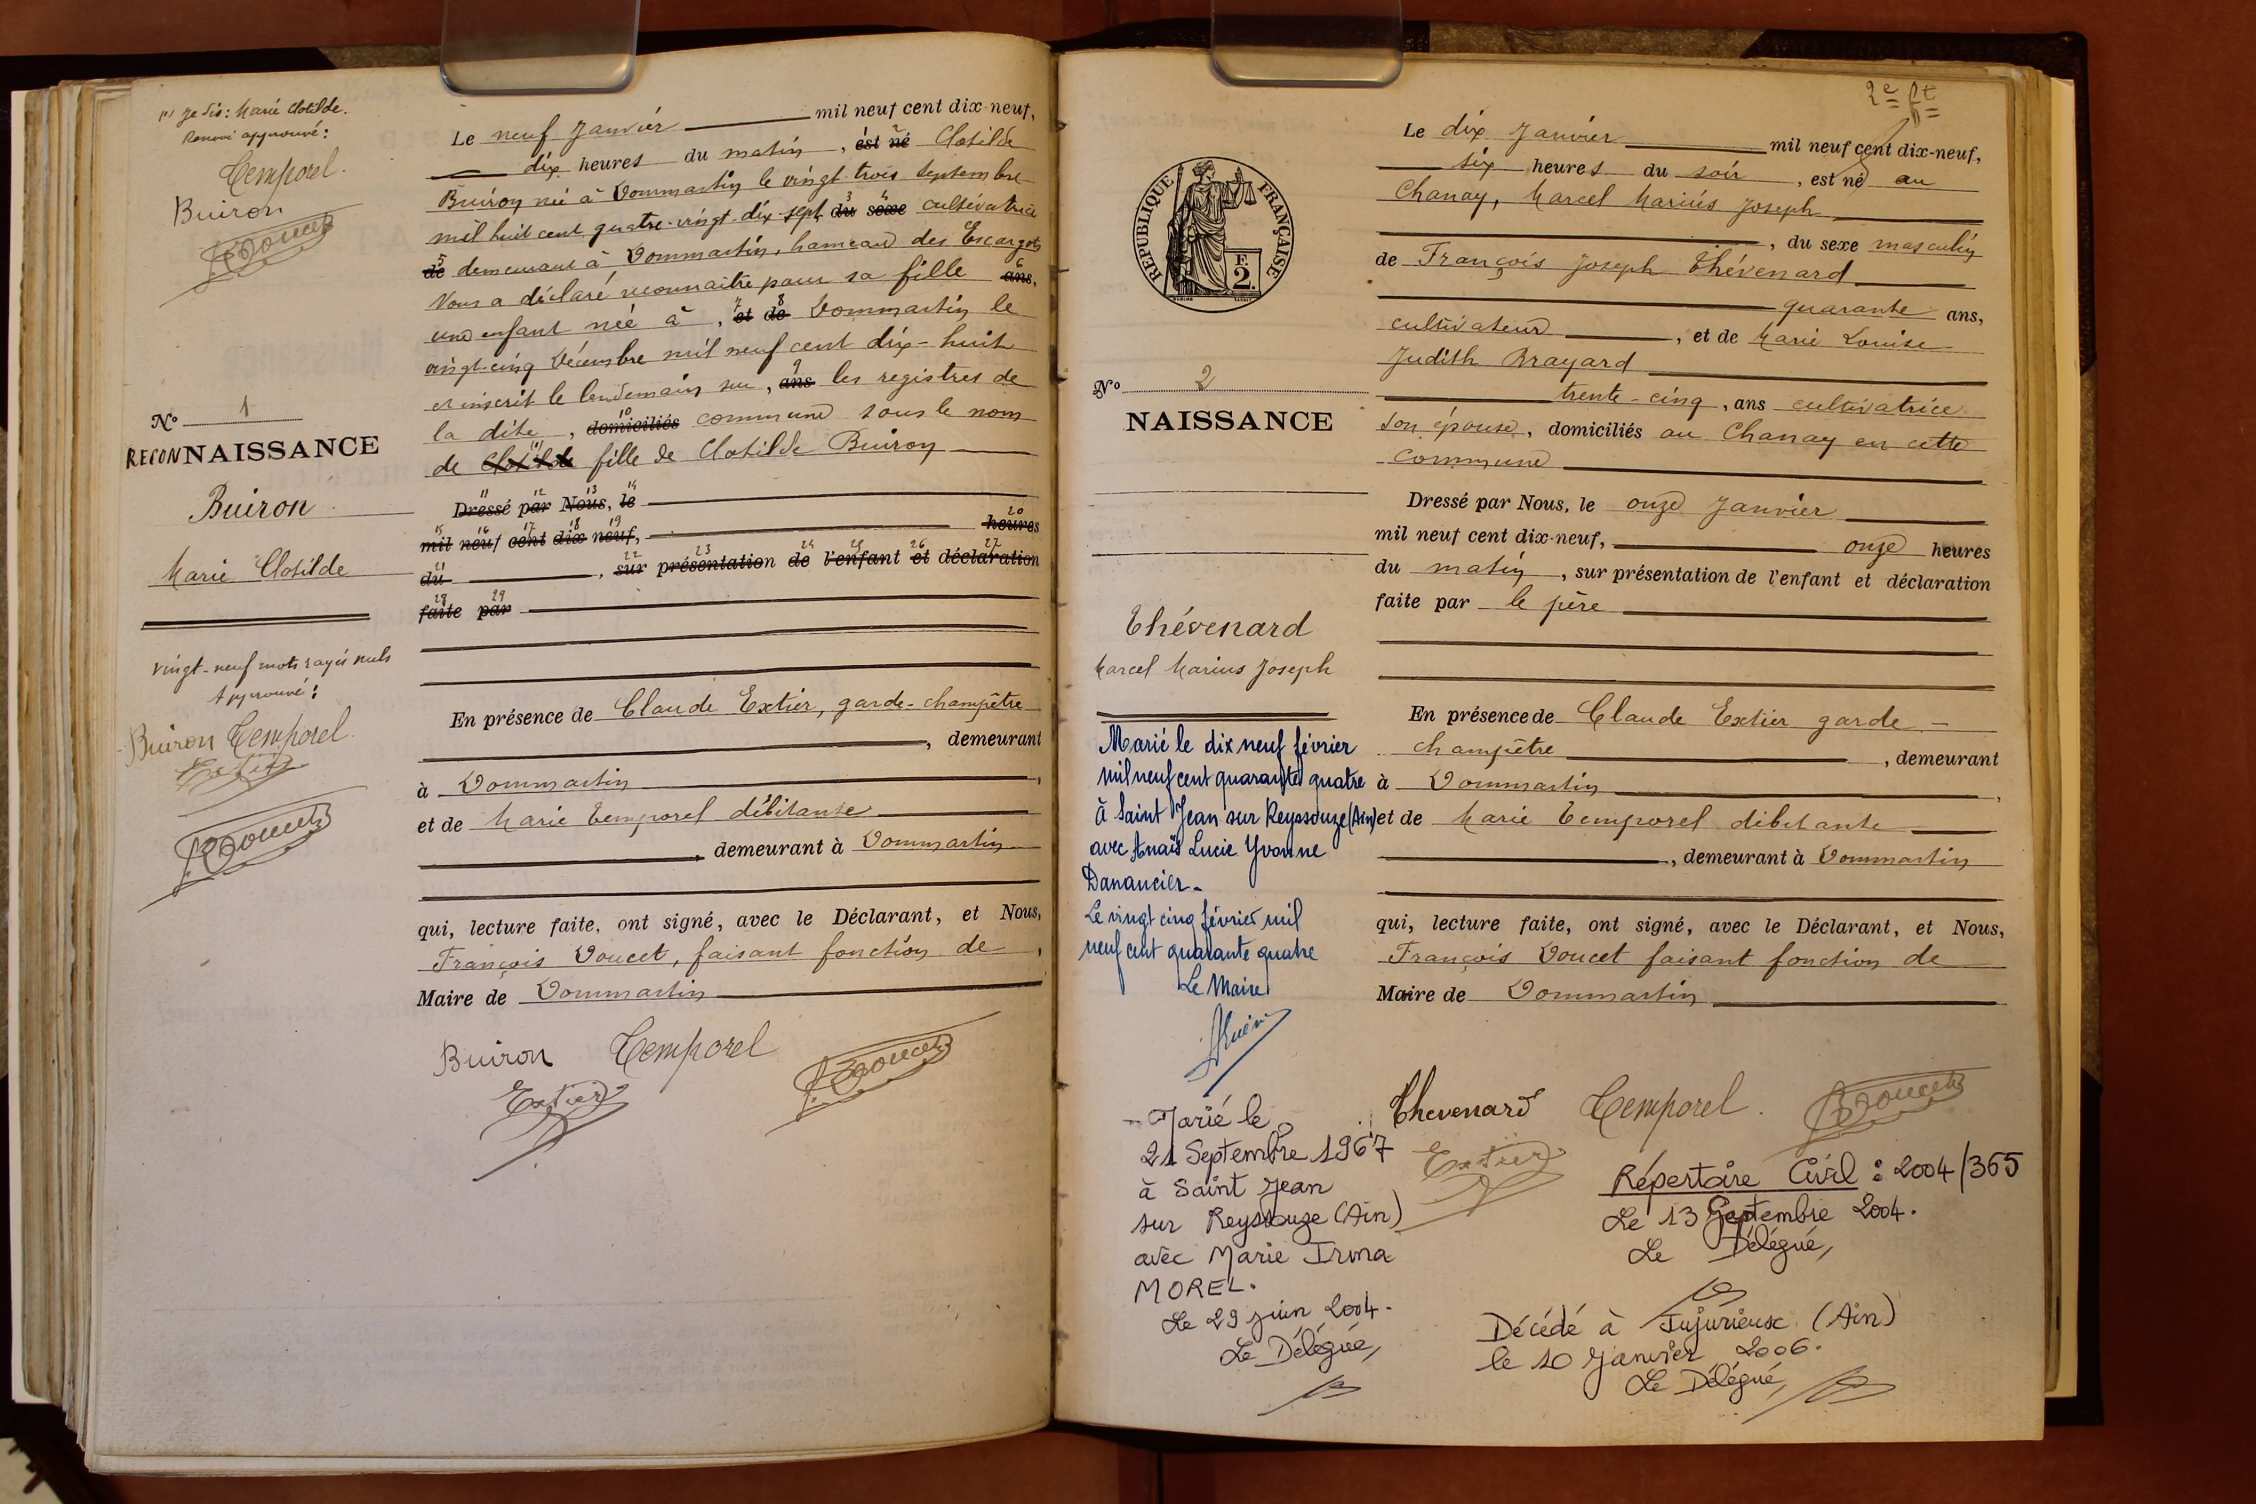 (1) Je dis : Marie Clotilde.
Renvoi approuvé :
Temporel.
Buiron
Doucet
Nº 1
RECONNAISSANCE
Buiron
Marie Clotilde
vingt-neuf mots rayés nuls
Approuvé :
Buiron Temporel.
Extier
Doucet
Le neuf Janvier mil neuf cent dix-neuf,
dix heures du matin, est né Clotilde
Buiron née à Dommartin le vingt-trois Septembre
mil huit cent quatre-vingt-dix-sept du sexe cultivatrice
de demeurant à Dommartin, hameau des Escargots
Nous a déclaré reconnaitre pour sa fille ans,
une enfant née à, et de Dommartin le
vingt-cinq Décembre mil neuf cent dix-huit
et inscrit le lendemain sur, ans les registres de
la dite, domiciliés commune sous le nom
de Clotilde (1) fille de Clotilde Buiron
Dressé par Nous, le
mil neuf cent dix neuf, heures
du, sur présentation de l'enfant et déclaration
faite par
En présence de Claude Extier, garde-champêtre
, demeurant
à Dommartin,
et de Marie Temporel débitante
, demeurant à Dommartin
qui, lecture faite, ont signé, avec le Déclarant, et Nous,
François Doucet, faisant fonction de,
Maire de Dommartin
Buiron Temporel Doucet
Extier
2e ft
RÉPUBLIQUE FRANÇAISE
E
2.
Nº 2
NAISSANCE
Thévenard
Marcel Marius Joseph
Marié le dix neuf février
mil neuf cent quarante quatre
à Saint Jean sur Reyssouze (Ain)
avec Anaïs Lucie Yvonne
Danancier.
Le vingt cinq février mil
neuf cent quarante quatre
Le Maire
Marié le
21 Septembre 1967
à Saint Jean
sur Reyssouze (Ain)
avec Marie Irma
MOREL.
Le 29 juin 2004.
Le Délégué,
Le dix Janvier mil neuf cent dix-neuf,
six heures du soir, est né au
Chanay, Marcel Marius Joseph
, du sexe masculin
de François Joseph Thévenard
quarante ans,
cultivateur, et de Marie Louise
Judith Brayard
trente-cinq, ans cultivatrice
son épouse, domiciliés au Chanay en cette
commune
Dressé par Nous, le onze Janvier
mil neuf cent dix-neuf, onze heures
du matin, sur présentation de l'enfant et déclaration
faite par le père
En présence de Claude Extier garde-
champêtre, demeurant
à Dommartin,
et de Marie Temporel débitante
, demeurant à Dommartin
qui, lecture faite, ont signé, avec le Déclarant, et Nous,
François Doucet faisant fonction de
Maire de Dommartin
Thevenard Temporel. Doucet
Extier
Répertoire Civil : 2004/365
Le 13 Septembre 2004.
Le Délégué,
Décédé à Jujurieux (Ain)
le 10 Janvier 2006.
Le Délégué,